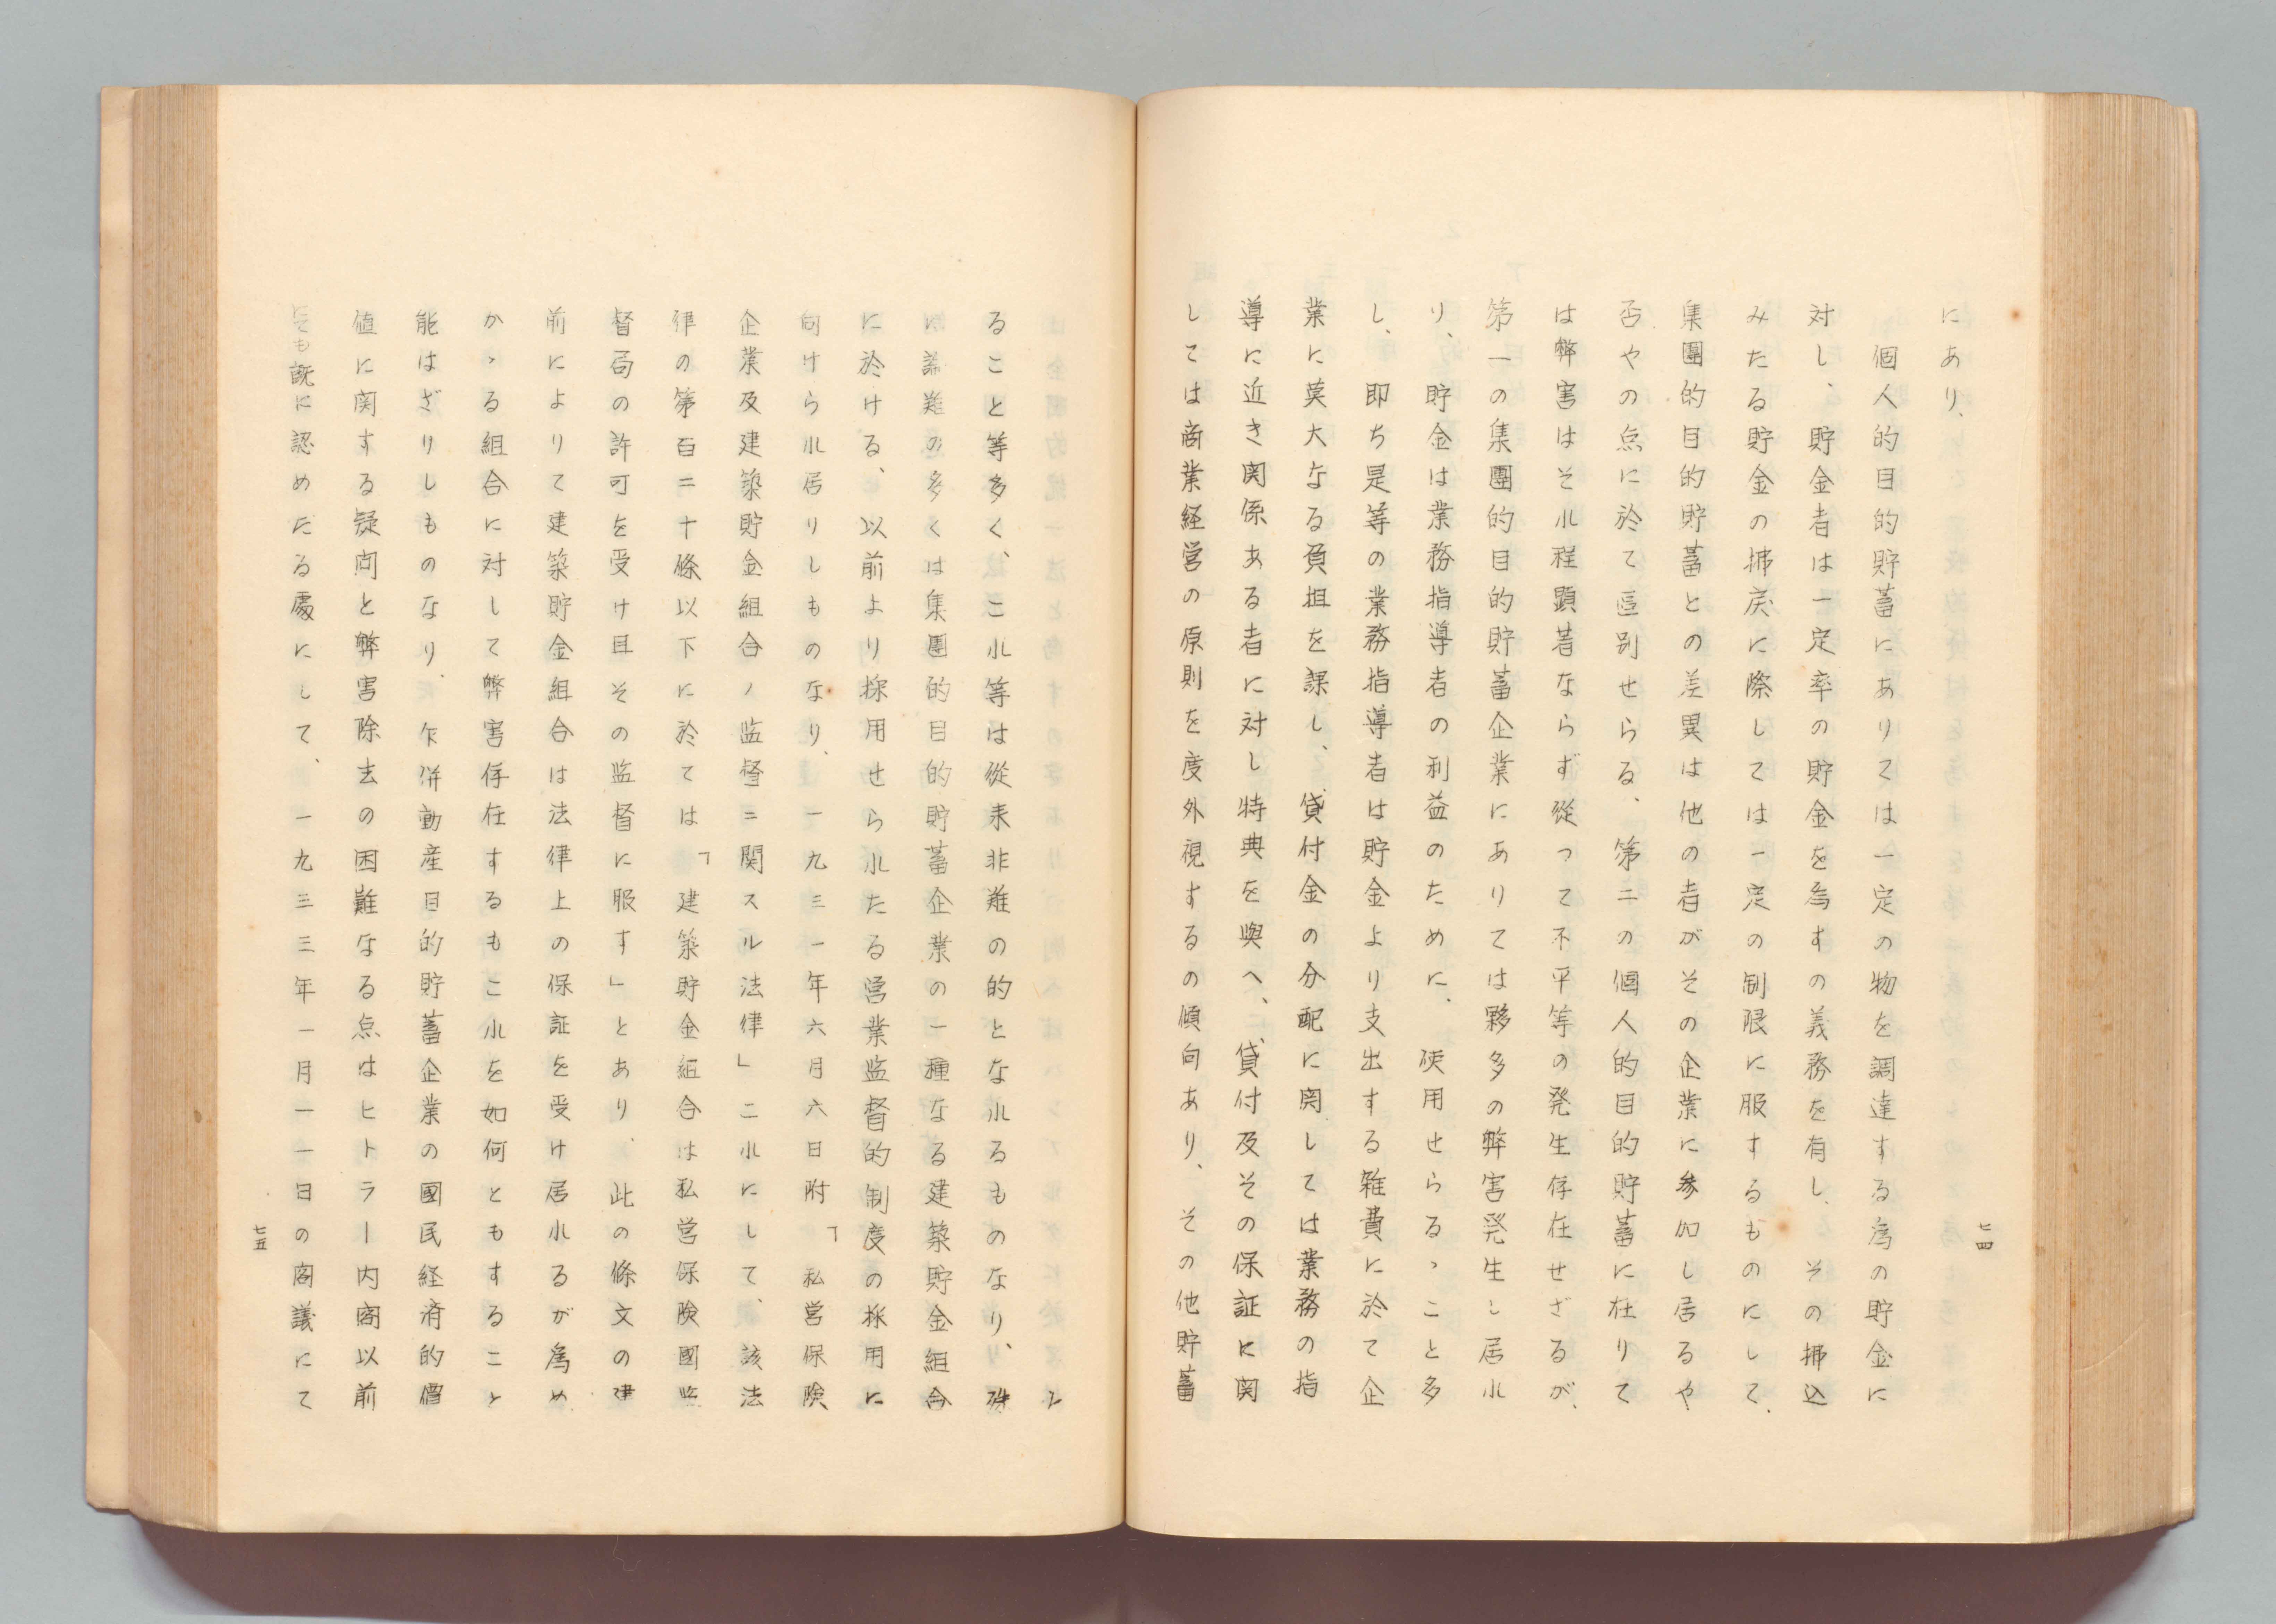 七四
にあり、
個人的目的貯蓄にありては一定の物を調達する為の貯金に
対し、貯金者は一定率の貯金を為すの義務を有し、その拂込
みたる貯金の拂戻に際しては一定の制限に服するものにして、
集團的目的貯蓄との差異は他の者がその企業に参加し居るや
否やの点に於て區別せらる、第二の個人的目的貯蓄に在りて
は弊害はそれ程顕著ならず從つて不平等の発生存在せざるが、
第一の集團的目的貯蓄企業にありては夥多の弊害発生し居れ
り、貯金は業務指導者の利益のために、使用せらるゝこと多
し、即ち是等の業務指導者は貯金より支出する雑費に於て企
業に莫大なる負担を課し、貸付金の分配に関しては業務の指
導に近き関係ある者に対し特典を與へ、貸付及その保証に関
しては商業経営の原則を度外視するの傾向あり、その他貯蓄
ること等多く、これ等は從来非難の的となれるものなり、殊
に論難の多くは集團的目的貯蓄企業の一種なる建築貯金組合
に於ける、以前より採用せられたる営業監督的制度の採用に
向けられ居りしものなり、一九三一年六月六日附「私営保険
企業及建築貯金組合ノ監督ニ関スル法律」これにして、該法
律の第百二十條以下に於ては「建築貯金組合は私営保険國監
督局の許可を受け且その監督に服す」とあり、此の條文の建
前によりて建築貯金組合は法律上の保証を受け居れるが為め
かゝる組合に対して弊害存在するもこれを如何ともすること
能はざりしものなり、乍併動産目的貯蓄企業の國民経済的價
値に関する疑問と弊害除去の困難なる点はヒトラー内閣以前
にても既に認めたる處にして、一九三三年一月一一日の閣議にて
七五